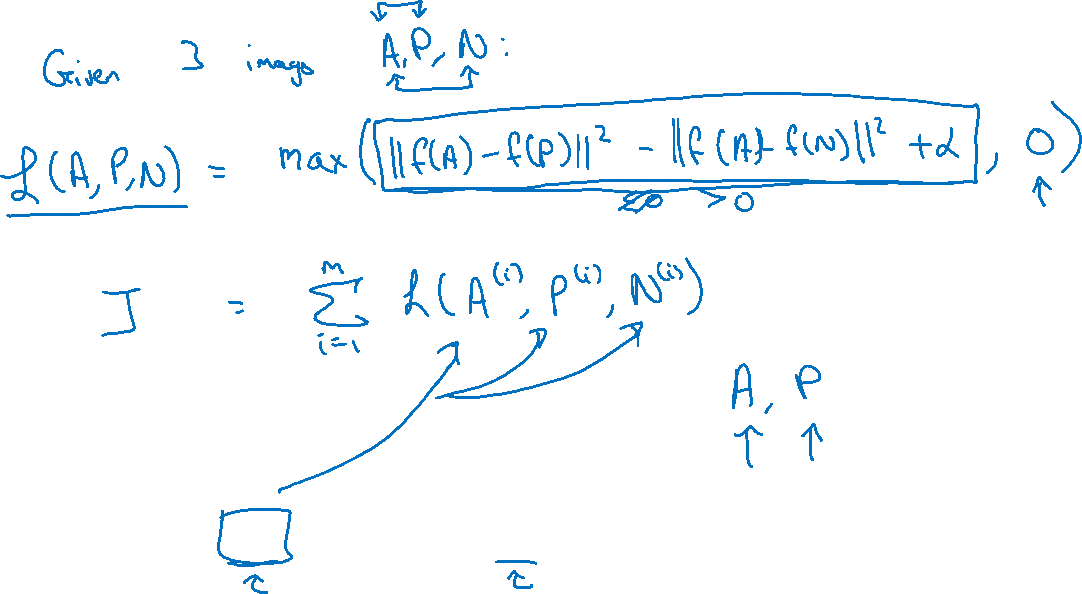 Given 3 images A, P, N:
L(A, P, N) = max(||f(A) - f(P)||² - ||f(A) - f(N)||² + α, 0)
> 0
J = Σ_{i=1}^{m} L(A^(i), P^(i), N^(i))
A, P